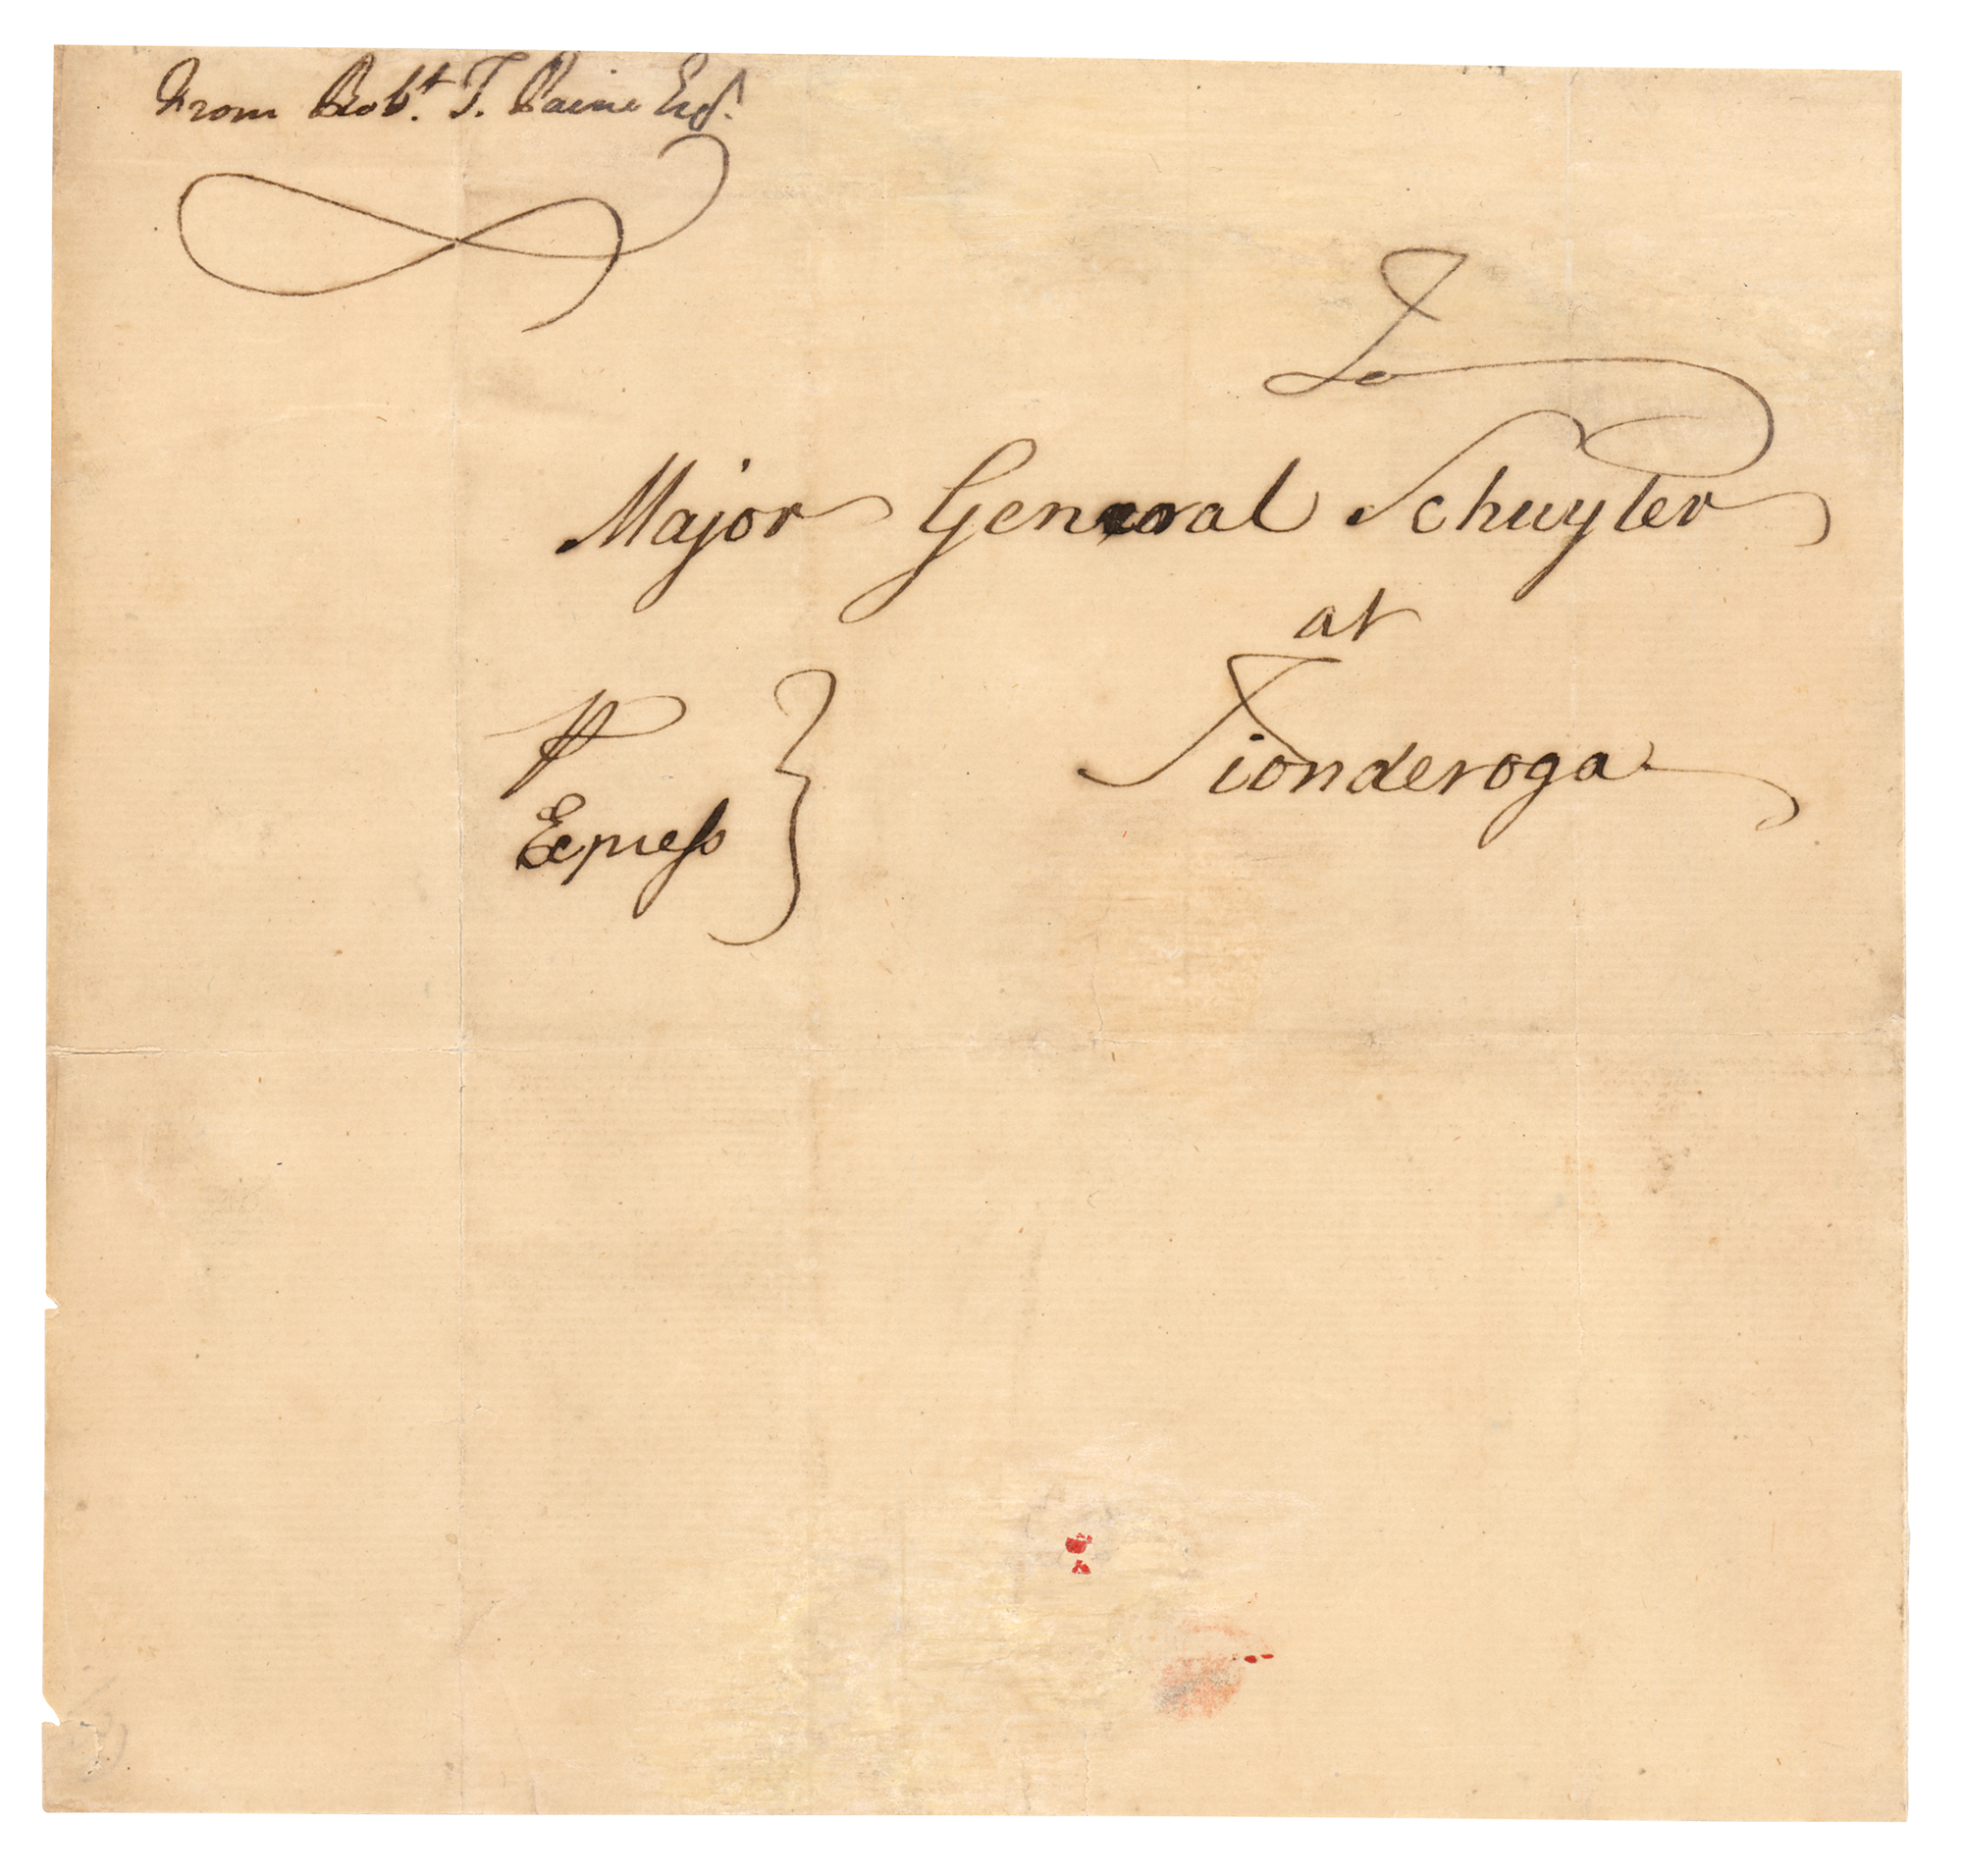 From Rob.t T. Paine Esq.r
To
Major General Schuyler
at
Tionderoga
⅌
Express